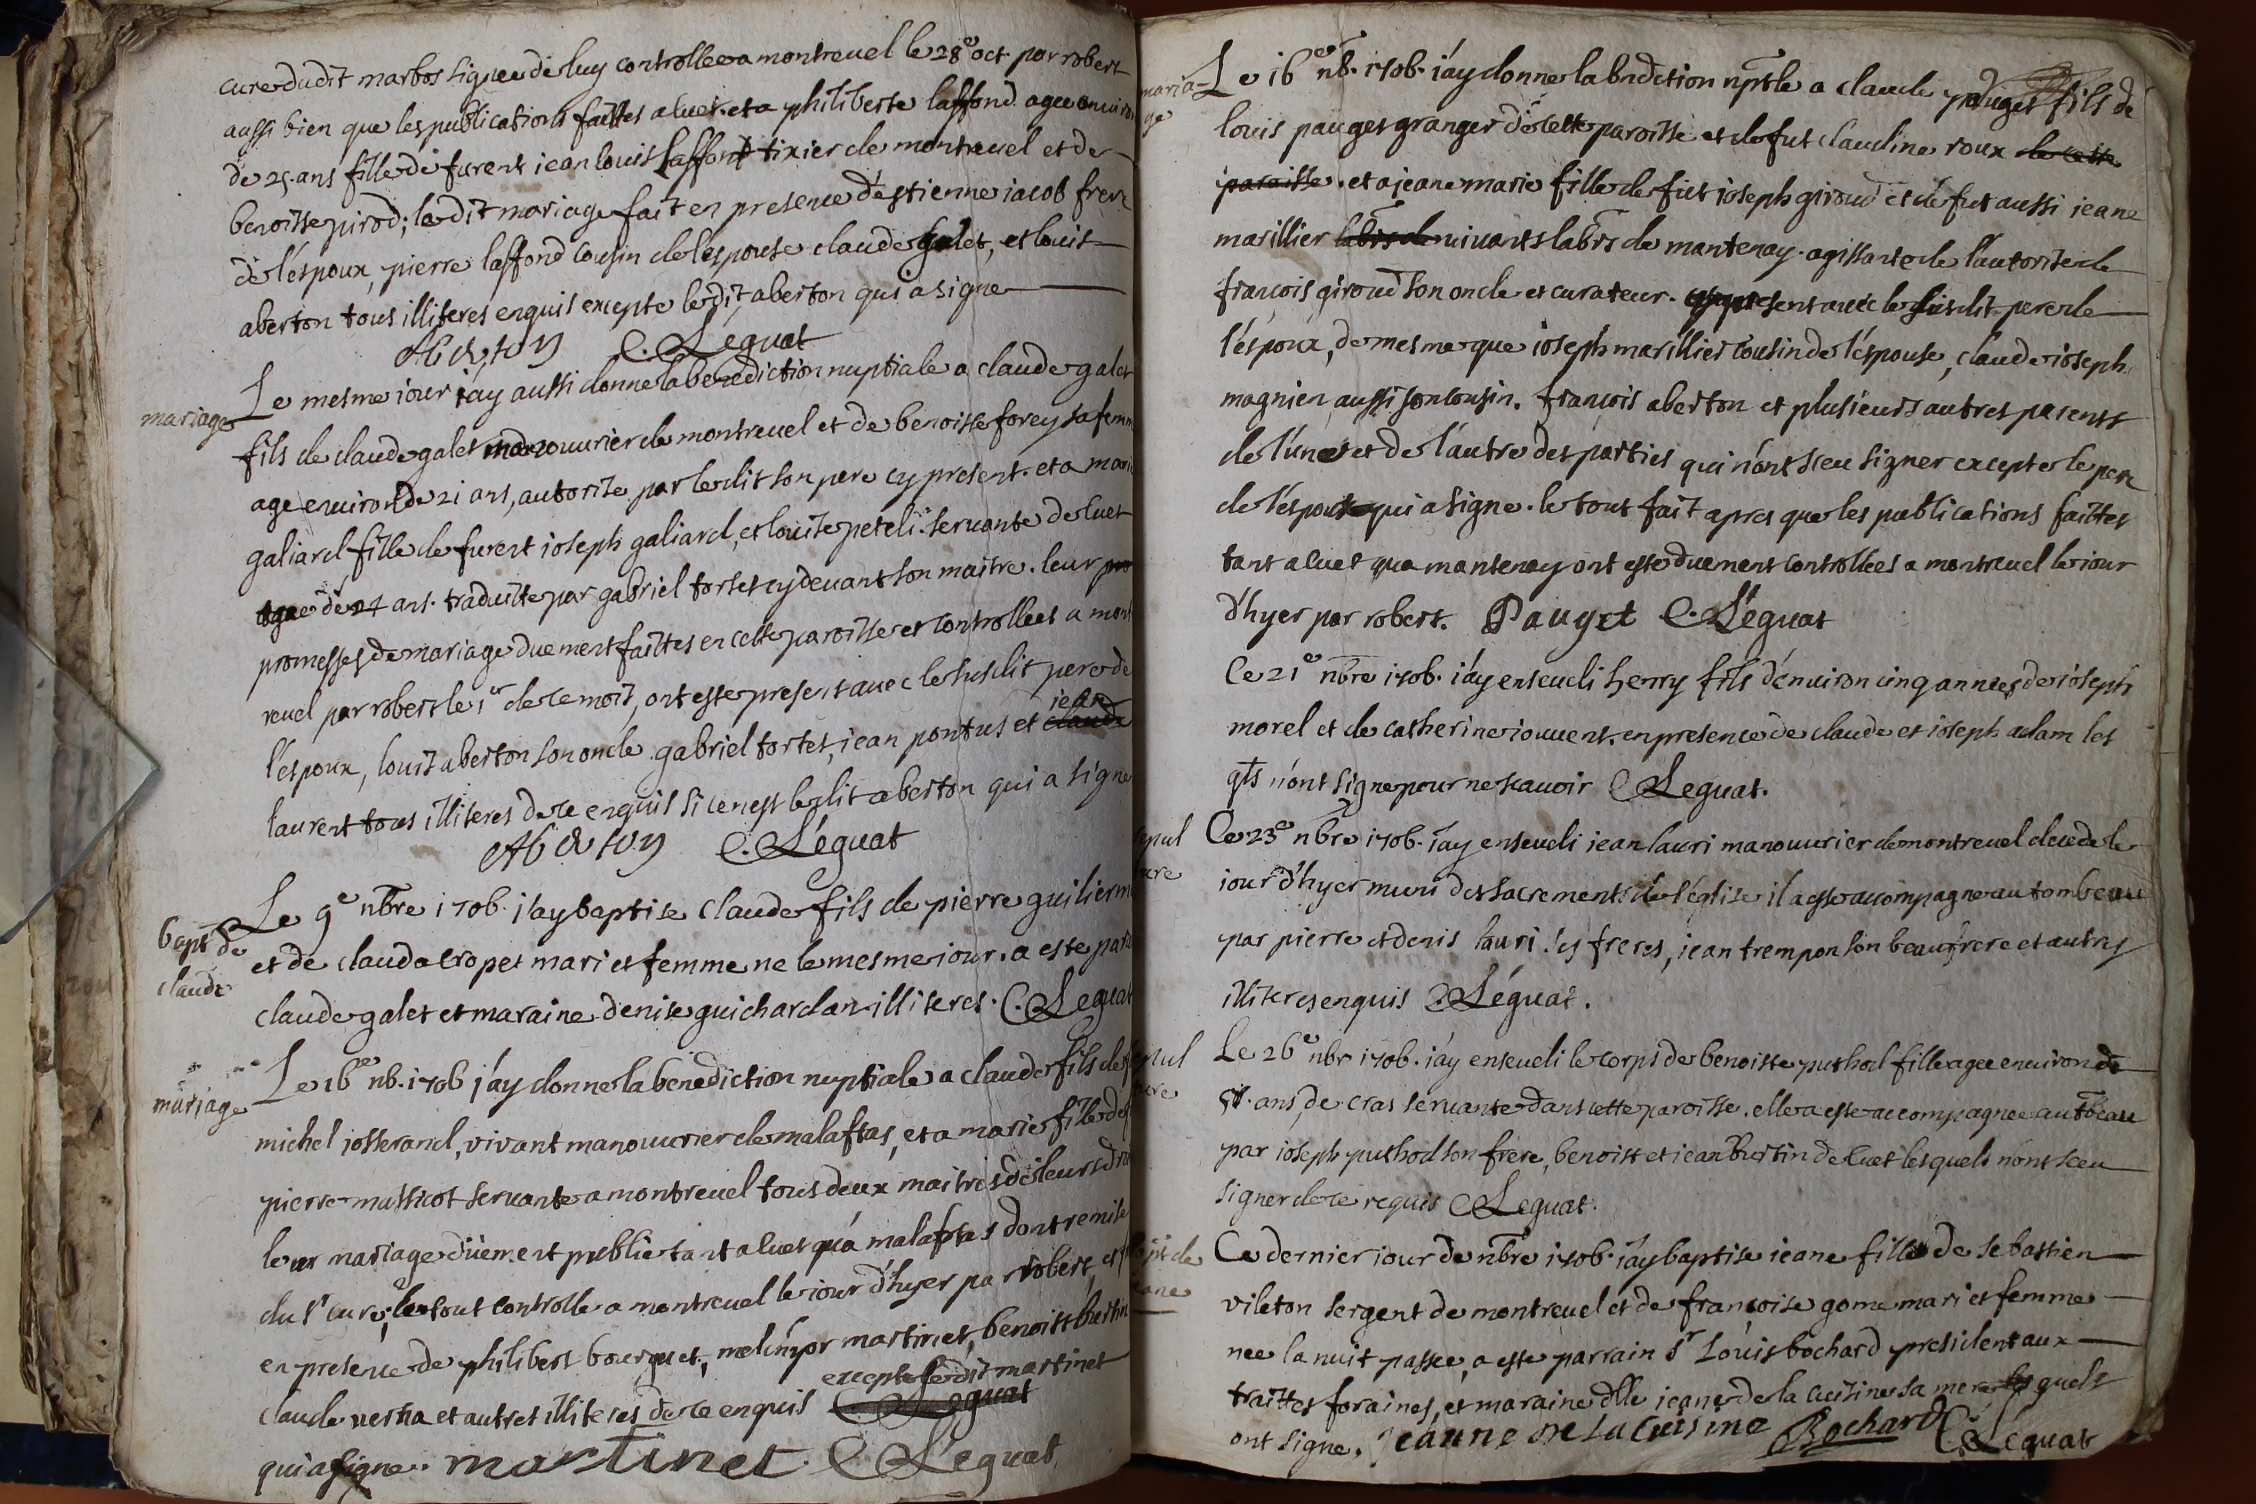 cure dudit marbos signee de luy controllee a montreuel le 28e oct. par robert
aussi bien que les publications faittes a luet. et a philiberte laffond agee enuiron
de 25. ans fille de furent jean louis laffont tixier de montreuel et de
benoitte pirod; le dit mariage fait en presence d'estienne jacob frere
de l'espoux, pierre laffond cousin de l'espouse claude galet, et louis
aberton tous illiteres enquis excepte le dit aberton qui a signe
Aberton C. Léguat
mariage
Le mesme iour i'ay aussi donne la benediction nuptiale a claude galet
fils de claude galet manouurier de montreuel et de benoitte forey sa femme
age enuiron de 21 ans, autorise par le dit son pere cy present. et a marie
galiard fille de furent joseph galiard, et louise peteli. seruante de luet
agee de 24 ans. traduitte par gabriel tortet cy deuant son maitre. leur
promesses de mariage duement faittes en cette paroisse et controllees a mont
reuel par robert le 1er de ce mois, ont este present auec le susdit pere de
l'espoux, louis aberton son oncle gabriel tortet, jean pontus et claude jean
laurent tous illiteres de ce enquis si ce n'est le dit aberton qui a signe
Aberton C. Léguat
bapt de
claude
Le 9e nbre 1706. i'ay baptise claude fils de pierre guilierm
et de clauda cropet mari et femme ne le mesme iour. a este par
claude galet et maraine denise guichardan illiteres. C. Leguat
mariage
Le 16e nb. 1706 j'ay donne la benediction nuptiale a claude fils de
michel josserand, vivant manouurier de malaftas, et a marie fille de
pierre mussicot seruante a montreuel tous deux maitres de leurs dr
leur mariage düement publie tant a luet qu'á malaftas dont remise
du sr cure; le tout controlle a montreuel le iour d'hyer par robert, et
en presence de philibert bourguet, melchior martinet, benoist burtin
claude verna et autres illiteres de ce enquis excepte le dit martinet
qui a signe. martinet C. Leguat
maria-
ge
Le 16e nb. 1706. i'ay donne la bndiction nptle a claude pauget fils de
louis pauget granger de cette paroisse et de fut claudine roux de cette
paroisse. et a jeane marie fille de fut joseph giroud et de fut aussi jeane
marillier labrs de uiuants labrs de mantenay. agissante de l'autorite de
françois giroud son oncle et curateur. cy present auec le susdit pere de
l'espoux, de mesme que joseph marillier cousin de l'espouse, claude joseph
magnien aussi son cousin. françois aberton et plusieurs autres parents
de l'une et de l'autre des parties qui n'ont sceu signer excepte le pere
de l'espoux qui a signe. le tout fait apres que les publications faittes
tant a luet qu'a mantenay ont este duement controllees a montreuel le iour
d'hyer par robert. Pauget C. Léguat
Ce 21e nbre 1706. i'ay enseueli henry fils d'enuiron cinq annees de ioseph
morel et de catherine iouuent. en presence de claude et joseph adam les
qls n'ont signe pour ne scauoir C Leguat.
sepul
ture
Ce 23e nbre 1706. i'ay enseueli jean lauri manouurier de montreuel decede le
iour d'hyer muni des sacrements de l'eglise il a este acompagne au tombeau
par pierre et denis lauri ses freres, jean trempon son beaufrere et autres
illiteres enquis C. Léguat.
sepul
ture
Le 26e nbr 1706. i'ay enseueli le corps de benoitte puthod fille agee enuiron de
ans, de cras seruante dans cette paroisse. elle a este accompagnee au tbeau
par joseph puthod son frere, benoist et jean Burtin de luet lesquels n'ont sceu
signer de ce requis C Leguat.
bapt de
jeane
Ce dernier iour de nbre 1706. i'ay baptise jeane fille de sebastien
vileton sergent de montreuel et de françoise gome mari et femme
nee la nuit passee, a este parrain sr Louis bochard president aux
traittes foraines, et maraine dlle jeane de la cuisine sa mere lesquels
ont signe. jeanne De La Cuisine Bochard C. Léguat